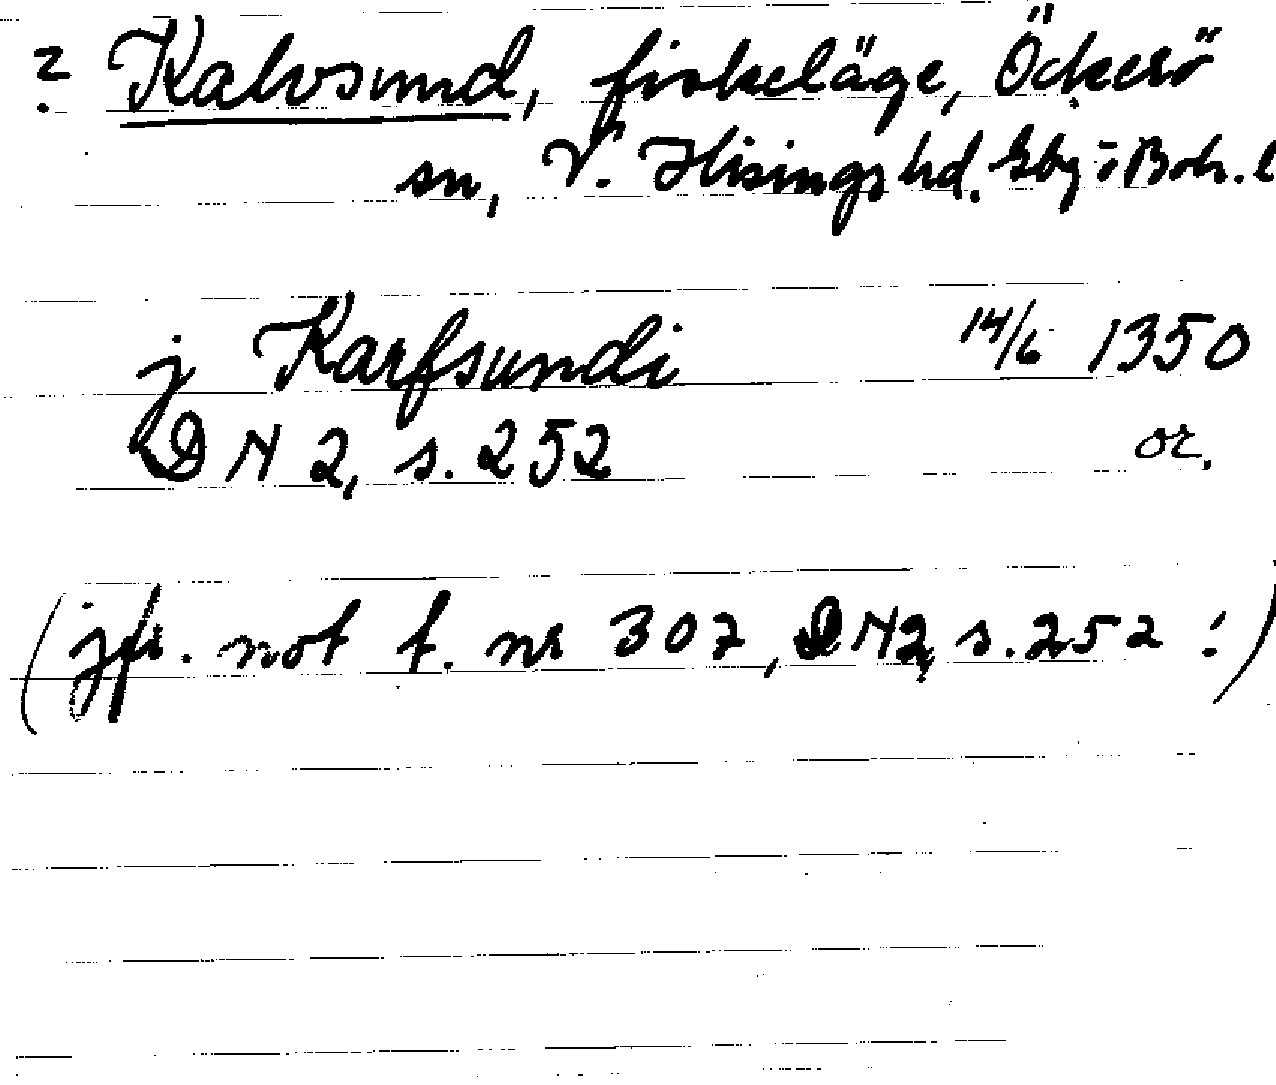 ? Kalvsund, fiskeläge, Öckerö
sn, V. Hisings hd. Gbg o Boh. l
j Karfsundi 14/6 1350
DN 2, s. 252 or.
(jfr. not t. nr 307, DN2, s. 252 !)